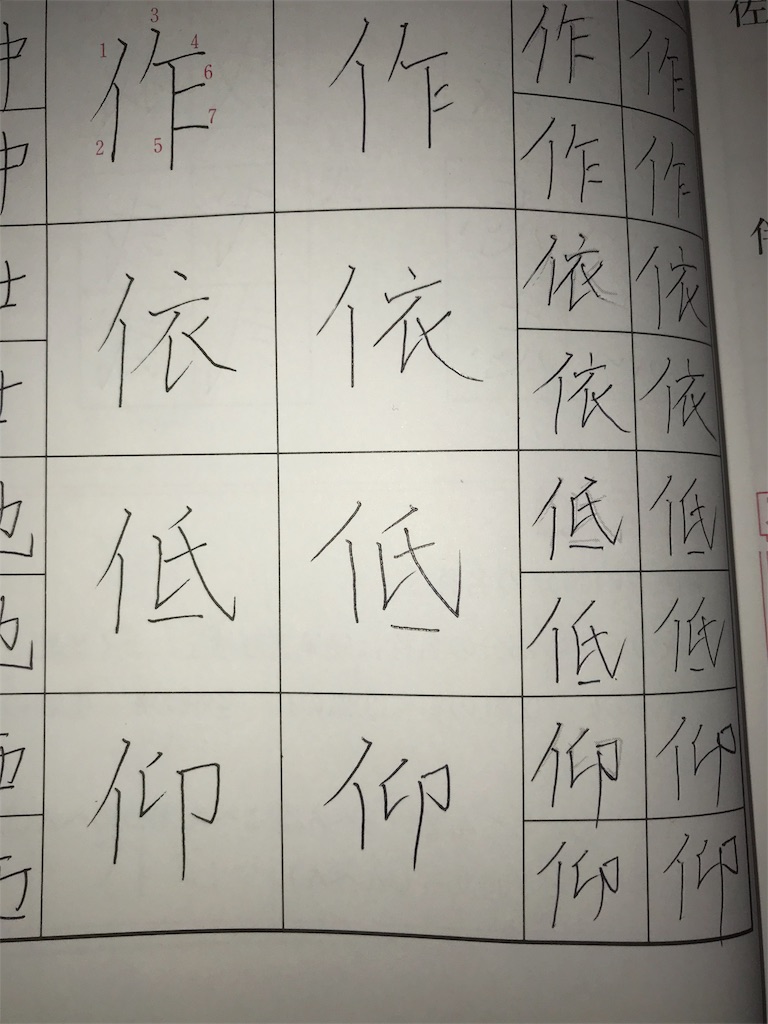 作 作 作 作
作 作
依 依 依 依
依 依
低 低 低 低
低 低
仰 仰 仰 仰
仰 仰
1 2 3 4 5 6 7